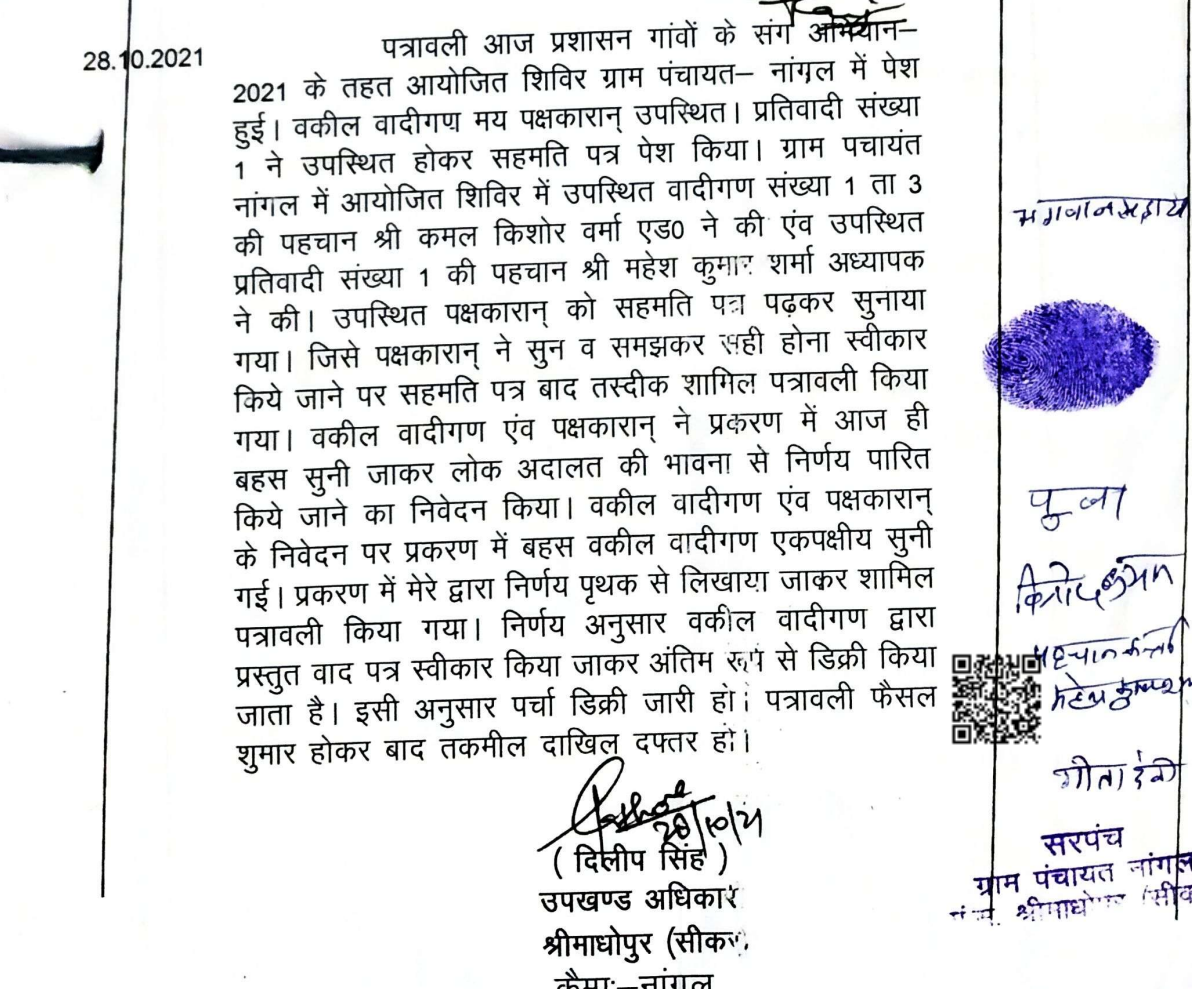 28.10.2021
पत्रावली आज प्रशासन गांवों के संग अभियान–
2021 के तहत आयोजित शिविर ग्राम पंचायत– नांगल में पेश
हुई। वकील वादीगण मय पक्षकारान् उपस्थित। प्रतिवादी संख्या
1 ने उपस्थित होकर सहमति पत्र पेश किया। ग्राम पचायंत
नांगल में आयोजित शिविर में उपस्थित वादीगण संख्या 1 ता 3
की पहचान श्री कमल किशोर वर्मा एड0 ने की एंव उपस्थित
प्रतिवादी संख्या 1 की पहचान श्री महेश कुमार शर्मा अध्यापक
ने की। उपस्थित पक्षकारान् को सहमति पत्र पढ़कर सुनाया
गया। जिसे पक्षकारान् ने सुन व समझकर सही होना स्वीकार
किये जाने पर सहमति पत्र बाद तस्दीक शामिल पत्रावली किया
गया। वकील वादीगण एंव पक्षकारान् ने प्रकरण में आज ही
बहस सुनी जाकर लोक अदालत की भावना से निर्णय पारित
किये जाने का निवेदन किया। वकील वादीगण एंव पक्षकारान्
के निवेदन पर प्रकरण में बहस वकील वादीगण एकपक्षीय सुनी
गई। प्रकरण में मेरे द्वारा निर्णय पृथक से लिखाया जाकर शामिल
पत्रावली किया गया। निर्णय अनुसार वकील वादीगण द्वारा
प्रस्तुत वाद पत्र स्वीकार किया जाकर अंतिम रूप से डिक्री किया
जाता है। इसी अनुसार पर्चा डिक्री जारी हो। पत्रावली फैसल
शुमार होकर बाद तकमील दाखिल दफ्तर हो।
28/10/21
( दिलीप सिंह )
उपखण्ड अधिकारी
श्रीमाधोपुर (सीकर)
कैम्पः–नांगल
भगवान सहाय
पूजा
पहचानकर्ता
गीता देवी
सरपंच
ग्राम पंचायत नांगल
पं.स. श्रीमाधोपुर (सीक